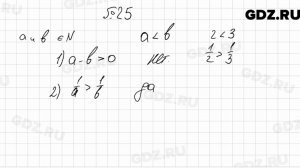 GDZ.RU
№25
a и b ∈ N a < b 2 < 3
1) a - b > 0 нет 1/2 > 1/3
2) 1/a > 1/b да
GDZ.RU